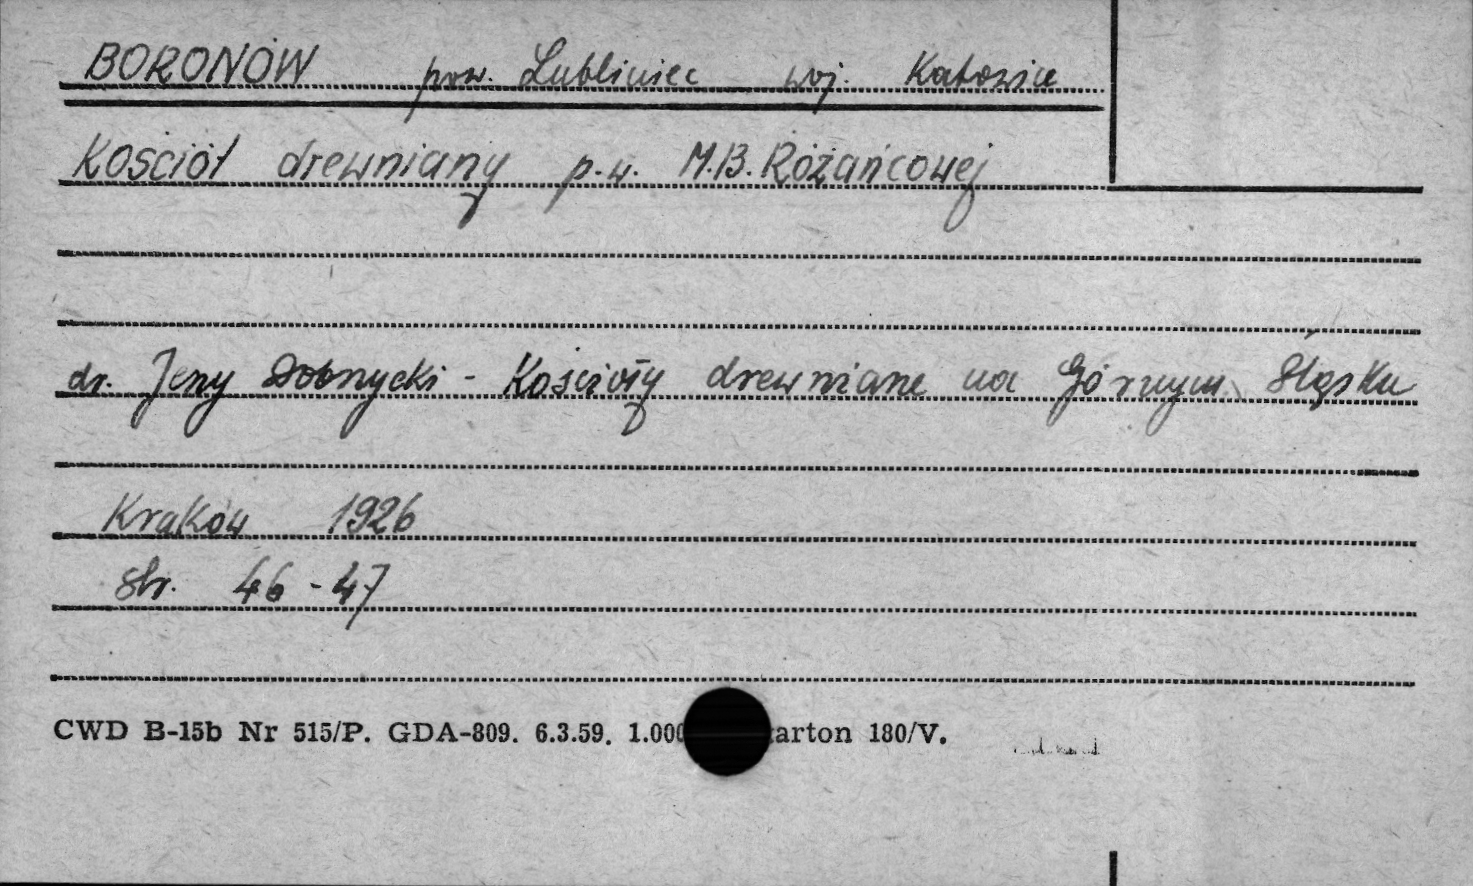 BORONÓW pow. Lubliniec woj. Katowice
Kościół drewniany p.w. M.B. Różańcowej
dr. Jerzy Dobrzycki - Kościoły drewniane na Górnym Śląsku
Kraków 1926
str. 46-47
CWD B-15b Nr 515/P. GDA-809. 6.3.59. 1.000 arton 180/V.